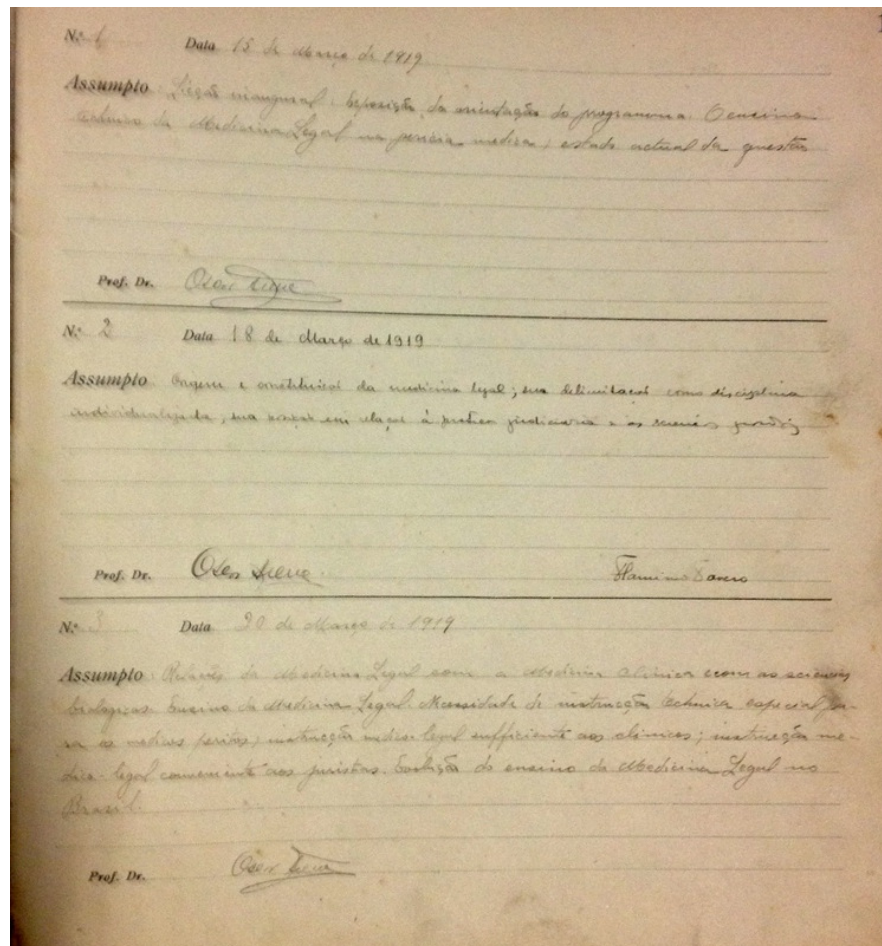 1
N.º 1 Data 15 de Março de 1919
Assumpto: Licção inaugural. Exposição da orientação do programma. O ensino
technico da Medicina Legal na pericia medica; estado actual da questão
Prof. Dr. Oscar Freire
N.º 2 Data 18 de Março de 1919
Assumpto: Origem e constituicão da medicina legal; sua delimitacão como disciplina
individualizada; sua em relação á pratica judiciaria e as sciencias
Prof. Dr. Oscar Freire Flaminio Favero
N.º 3 Data 20 de Março de 1919
Assumpto: Relações da Medicina Legal com a Medicina Clinica e com as sciencias
biologicas. Ensino da Medicina Legal. Necessidade de instrucção technica especial pa-
ra os medicos peritos; instrucção medico-legal sufficiente aos clinicos; instrucção me-
dico-legal conveniente aos juristas. Evolução do ensino da Medicina Legal no
Brasil.
Prof. Dr. Oscar Freire